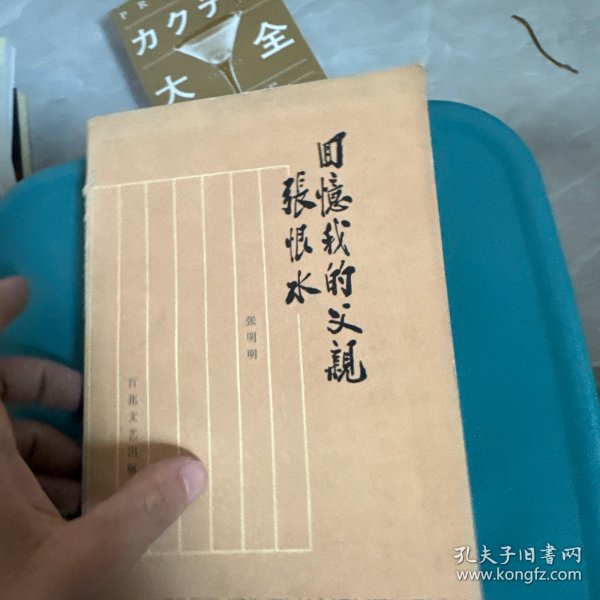 カクテ
大全
回憶我的父親
張恨水
张明明
百花文艺出版
孔夫子旧書网
www.kongfz.com